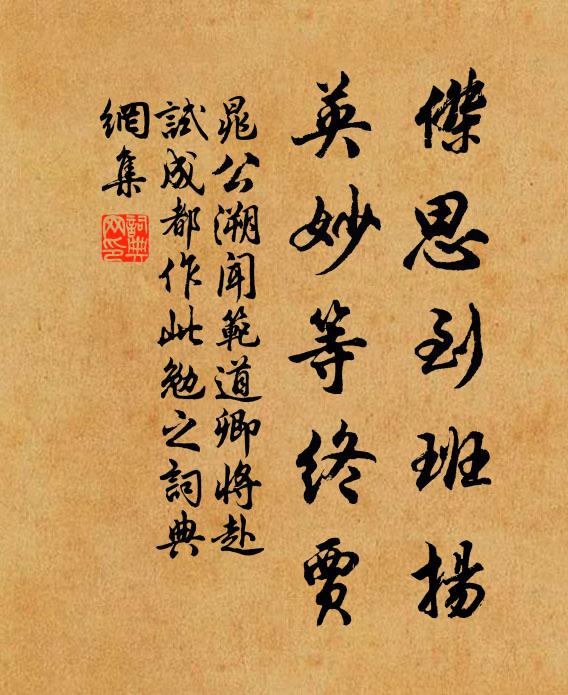 傑思到班揚
英妙等終賈
晁公溯聞範道卿將赴
試成都作此勉之詞典
網集
詞典
网印